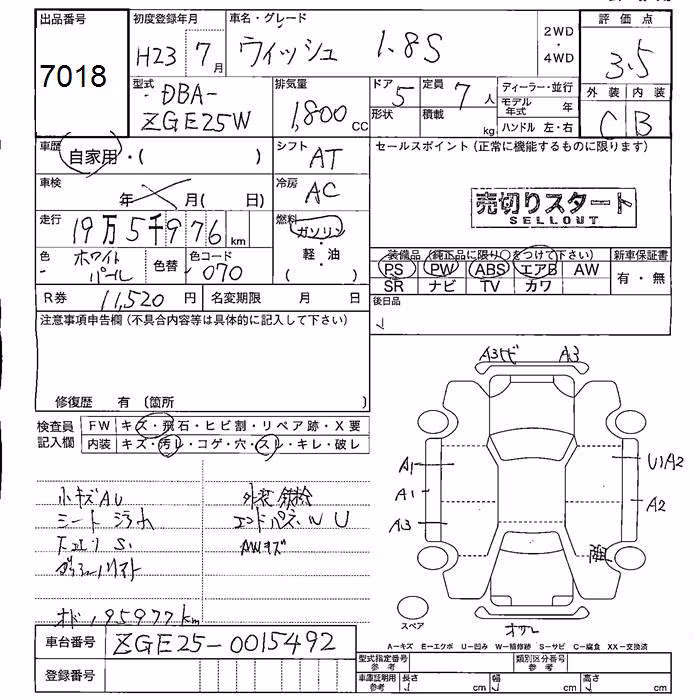 出品番号
7018
初度登録年月
H23 7月
車名・グレード
ウィッシュ 1.8S
2WD
・
4WD
評価点
3.5
外装 内装
C B
型式
DBA-
ZGE25W
排気量
1,800 cc
ドア 5
定員 7人
形状
積載 kg
ディーラー・並行
モデル年式 年
ハンドル 左・右
車歴
自家用・( )
シフト AT
車検
年 月( 日)
冷房 AC
走行
19万5千976 km
燃料
ガソリン
軽・油
( )
色 ホワイトパール
色替
色コード 070
R券 11,520円
名変期限 月 日
セールスポイント(正常に機能するものに限ります)
売切りスタート
SELLOUT
装備品(純正品に限り○をつけて下さい)
PS PW ABS エアB AW
SR ナビ TV カワ
新車保証書
有・無
後日品
注意事項申告欄(不具合内容等は具体的に記入して下さい)
修復歴 有 (箇所 )
検査員記入欄
FW キズ・飛石・ヒビ割・リペア跡・X要
内装 キズ・汚レ・コゲ・穴・スレ・キレ・破レ
小キズAU
シート
S.
エンドパネルU
AWキズ
オド195977km
A3 A3
A1 U1A2
A1 A2
A3
スペア
A-キズ E-エクボ U-凹み W-補修跡 S-サビ C-腐食 XX-交換済
車台番号
ZGE25-0015492
登録番号
型式指定番号 参考
類別区分番号 参考
車庫証明用 参考
長さ cm
幅 cm
高さ cm